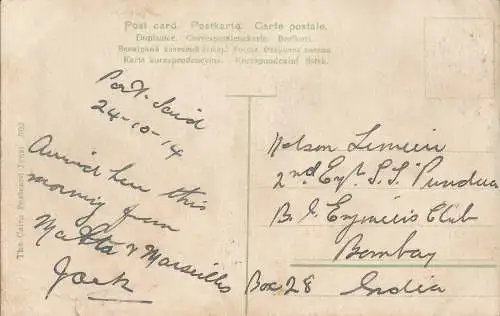 Post card. Postkarte. Carte postale.
Dopisnice. Correspondenzkarte.
Karta korespondencyjna.
The Cairo Postcard Trust
Port Said
24-10-14
Arrived here this
morning from
Malta & Marseilles
Jack
Nelson
2nd Eng. S.S. Pundua
B.I. Engineers Club
Bombay
Box 28 India